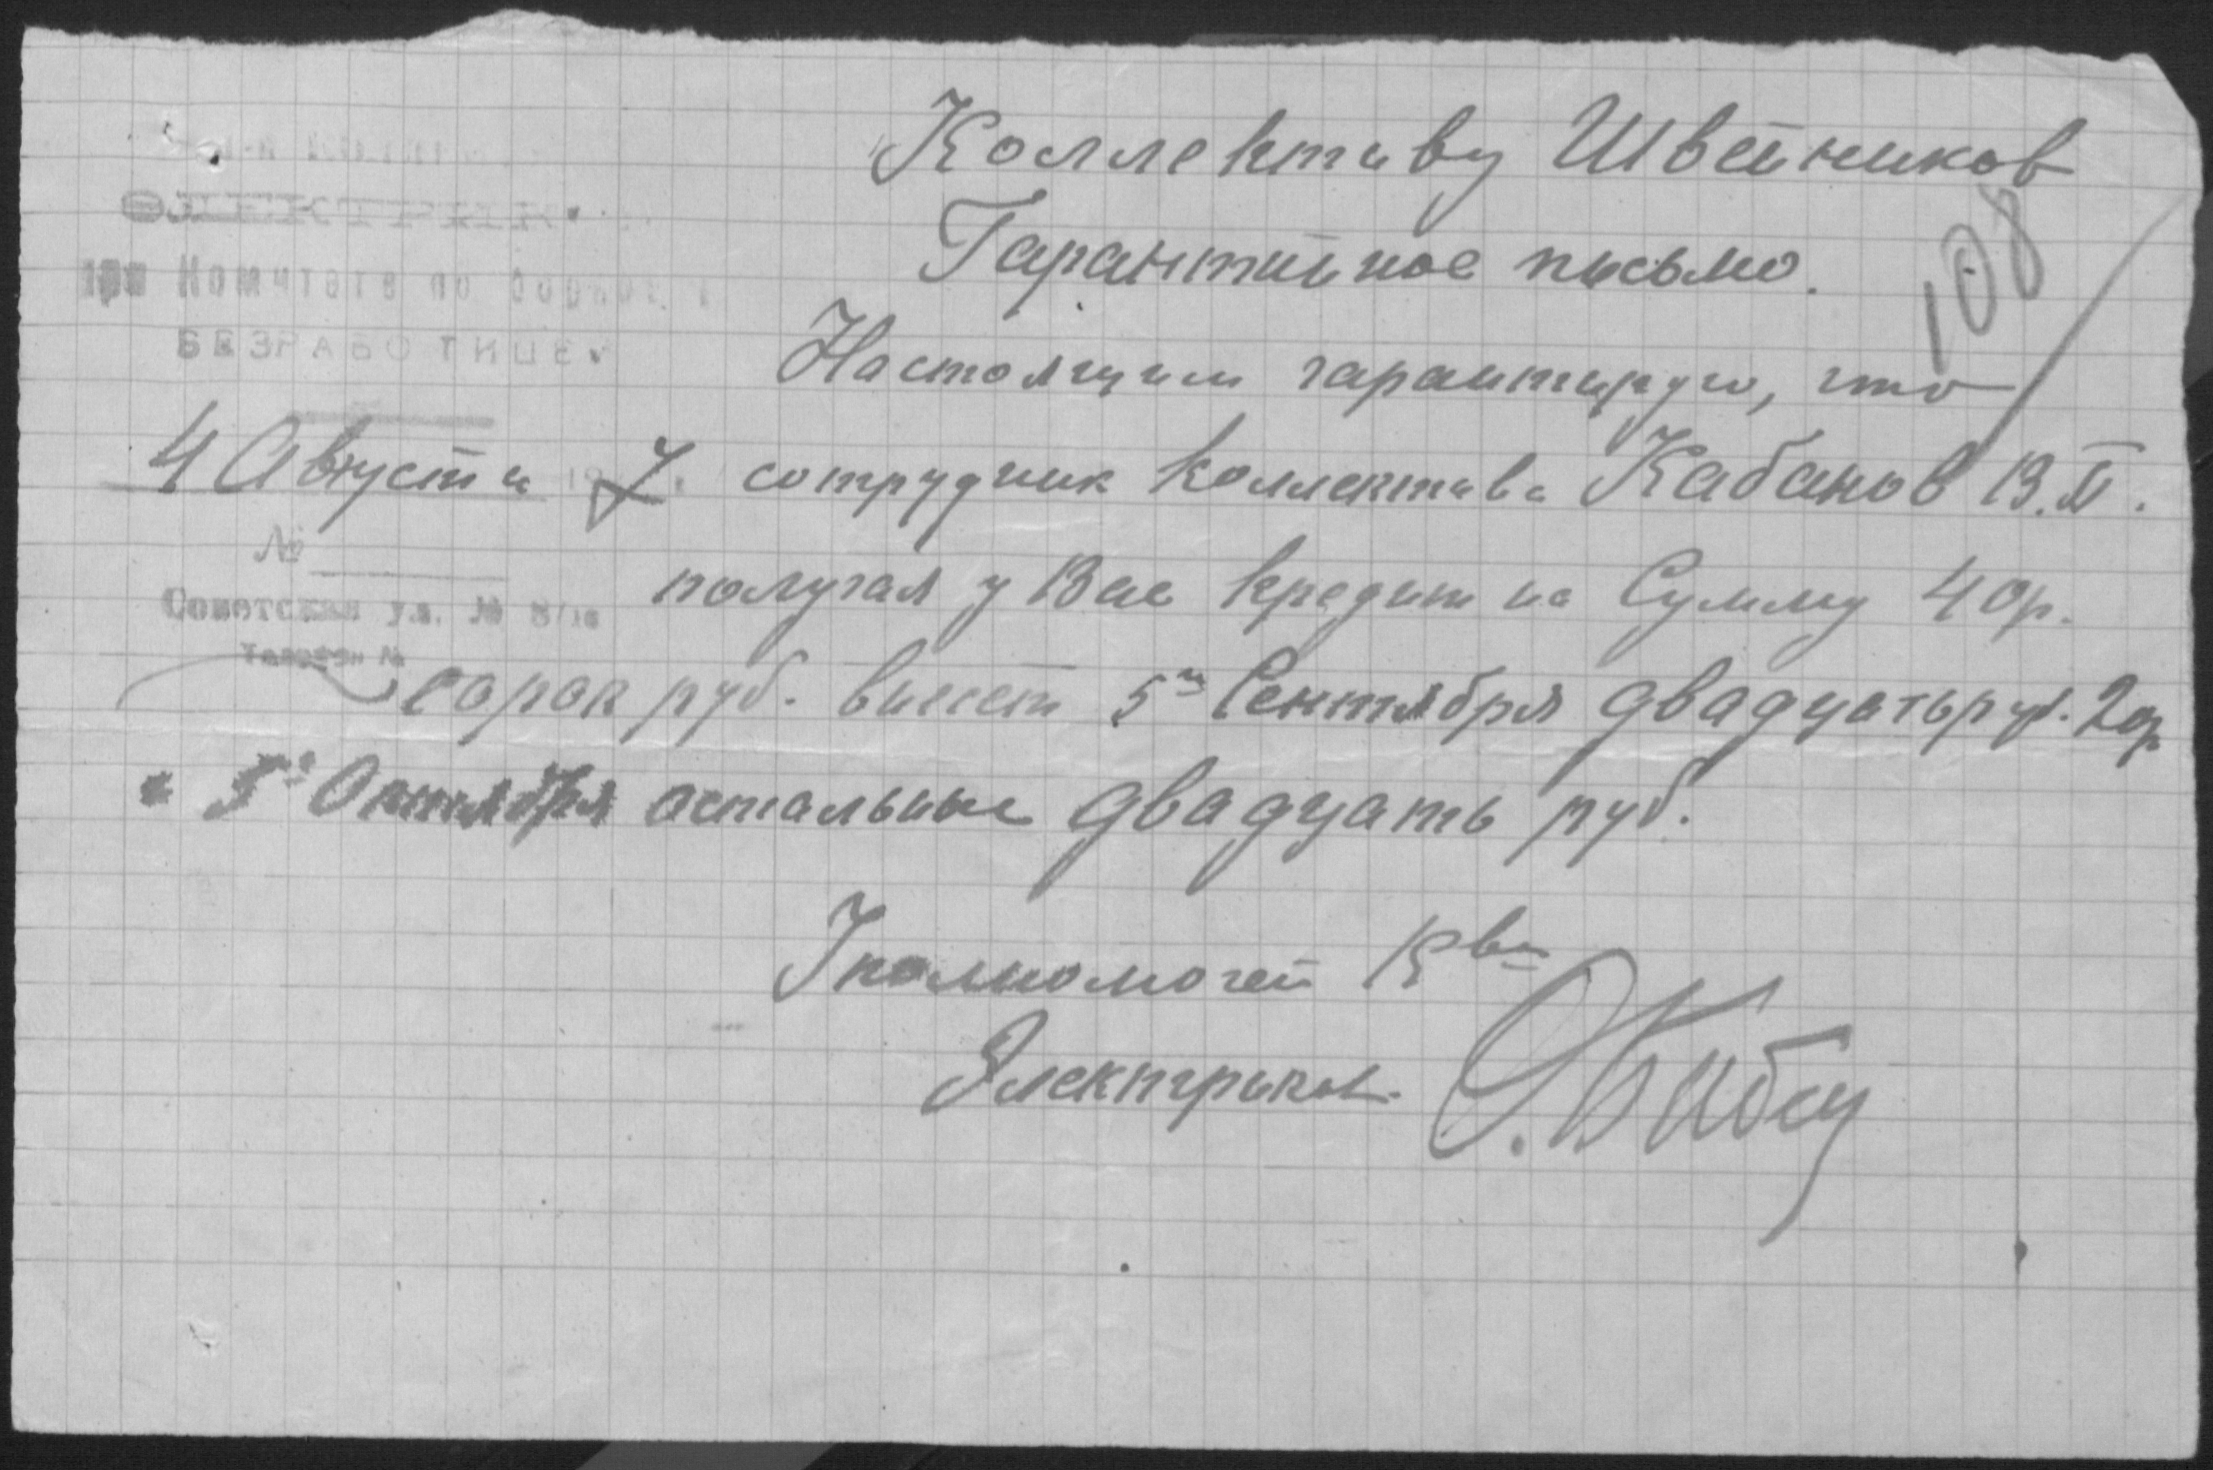 Коллективу Швейников
Гарантийное письмо.
108
Настоящим гарантирую, что
ЭЛЕКТРИК
при Комитете по борьбе с
БЕЗРАБОТИЦЕЙ
4 Августа 1927 сотрудник коллектива Кабанов В.П.
№
получая у Вас кредит на Сумму 40р.
Советская ул. № 8/10
Телефон №
сорок руб. внесет 5го Сентября двадцать руб. 20р
и 5го Октября остальные двадцать руб.
Уполномочен К-ва
Электриков.